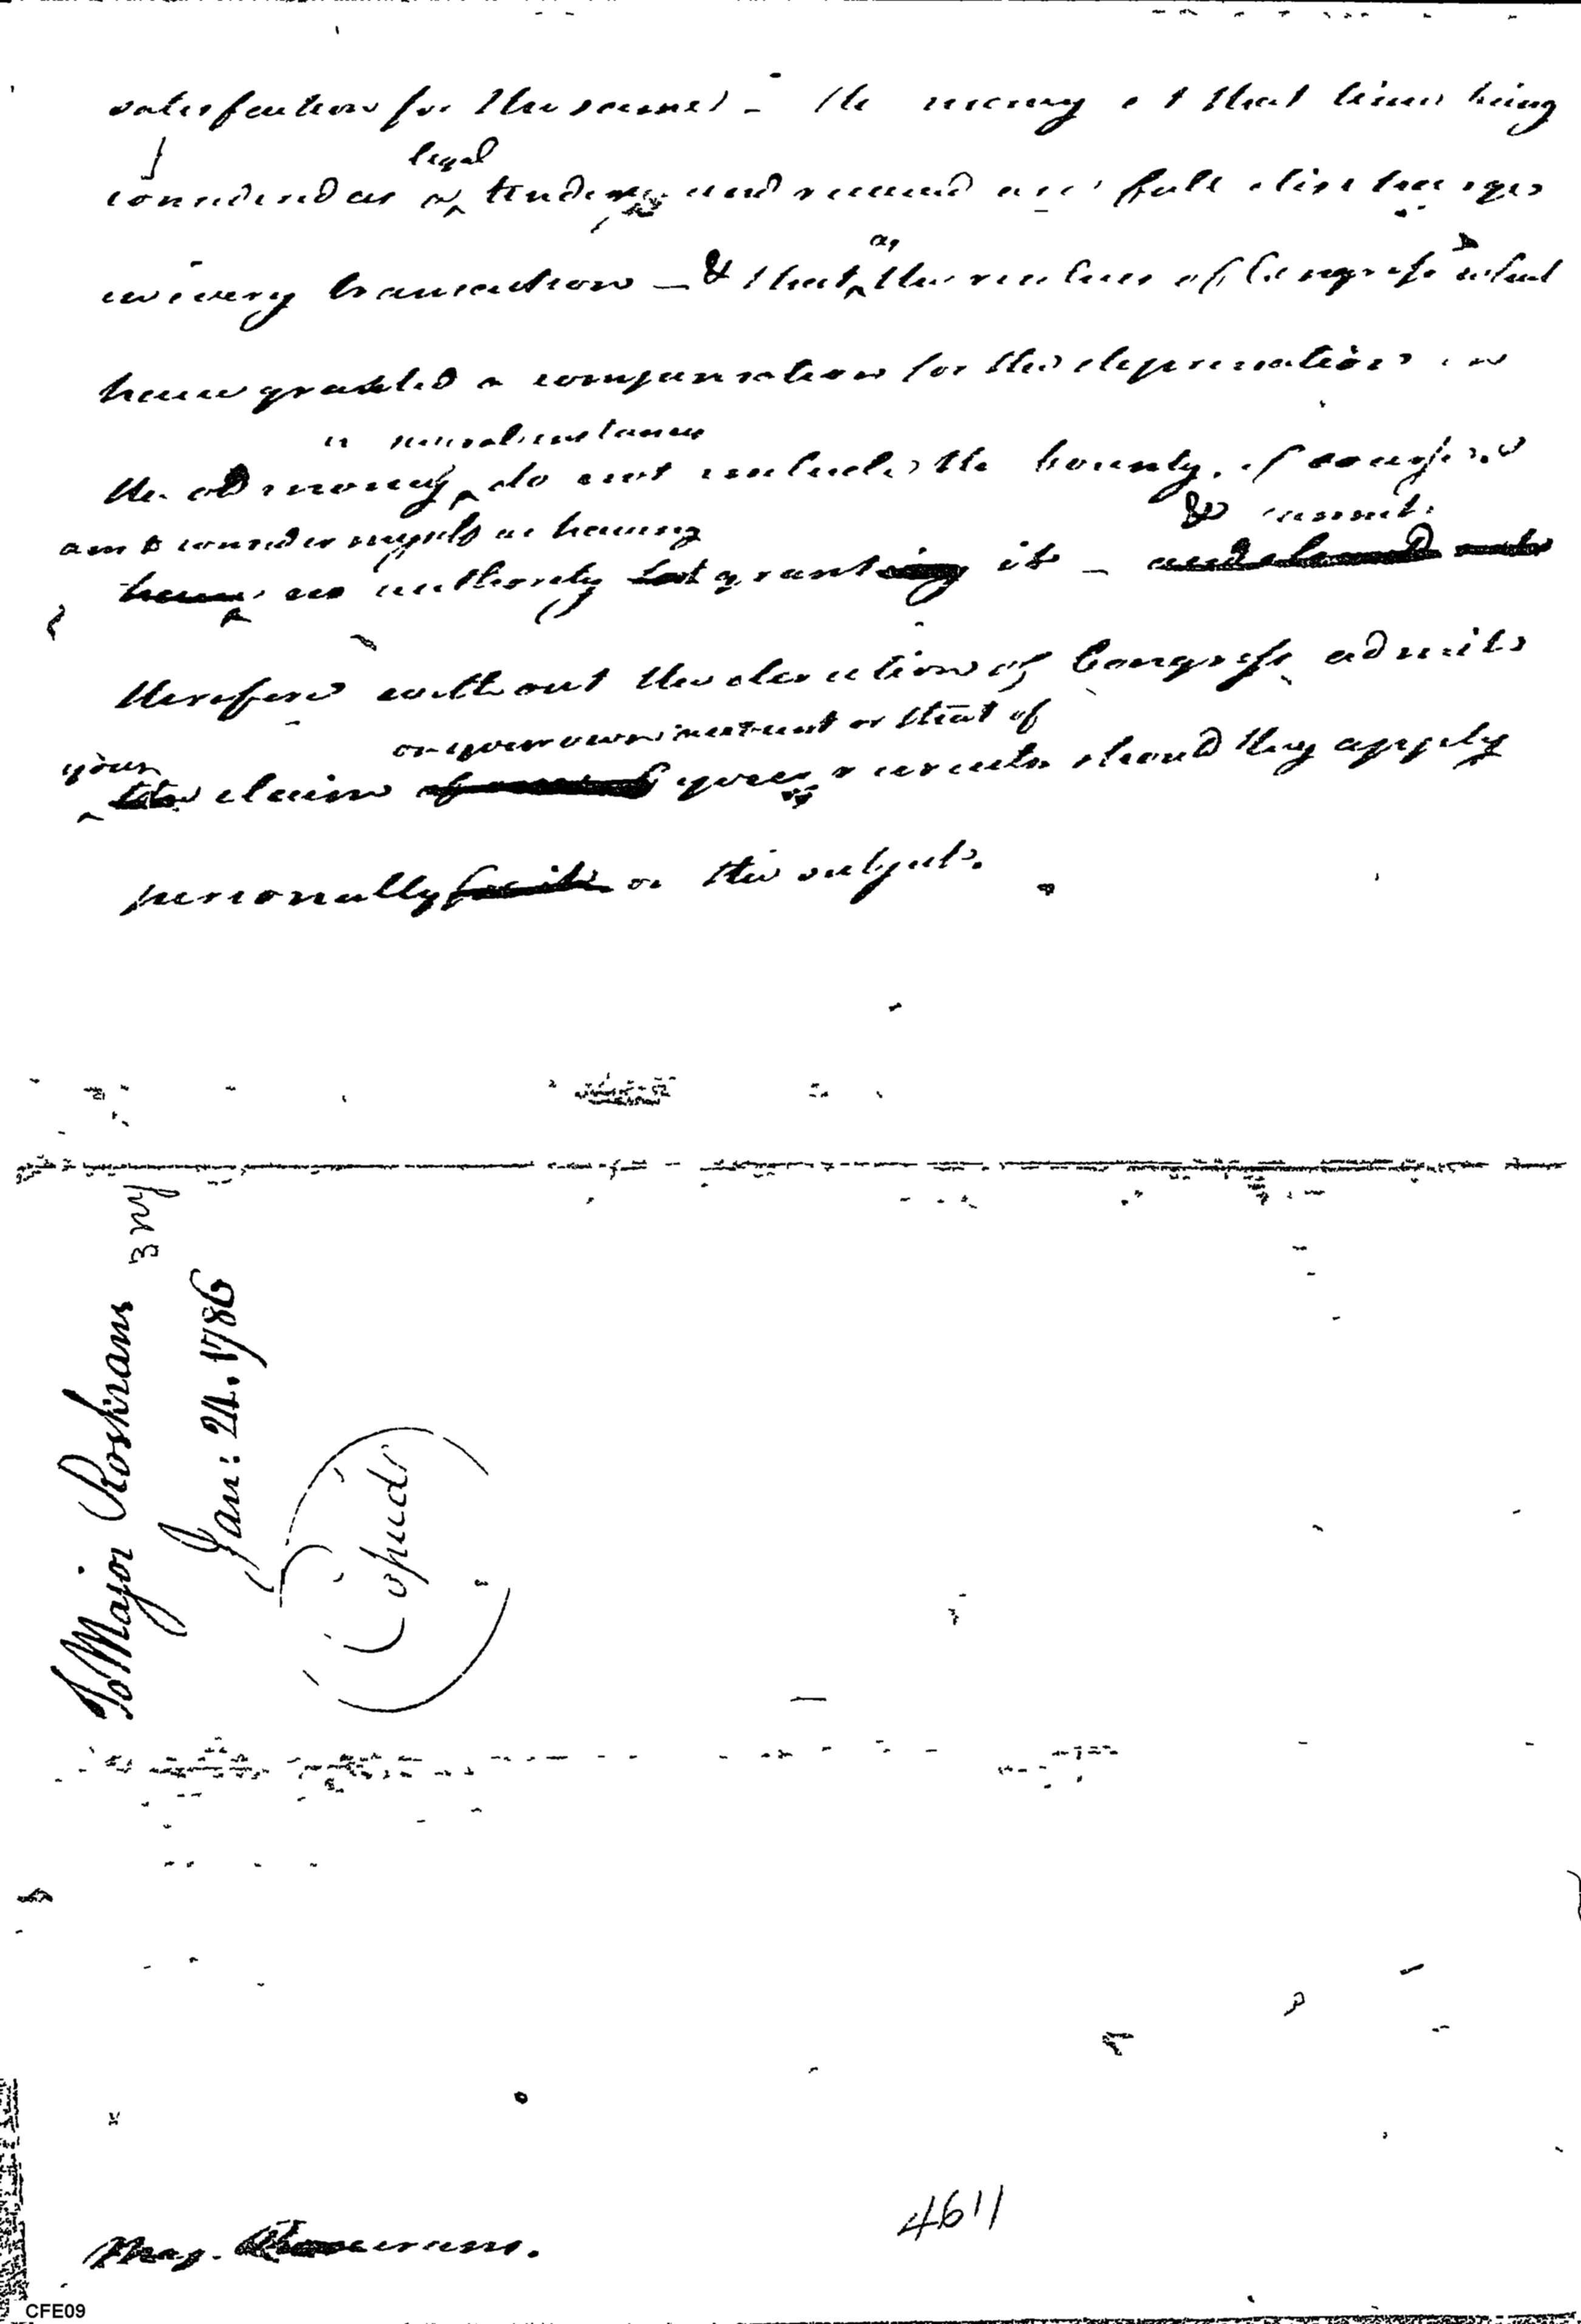 satisfaction for the same) - the money at that time being
legal
considered as a tender and received as a full discharge
in every transaction - & that the resolves of Congress which
as
have granted a compensation for the depreciation in
in several instances
the old money do not include the bounty. of course I
am to consider myself as having & cannot
have no authority granting it -
therefore without the decision of Congress admit
on your own account or that of
your claim your recruits should they apply
personally on the subject.
To Major Roskrans 3 NY
Jan: 24. 1786
Copied
Maj. Rosecrans.
4611
CFE09